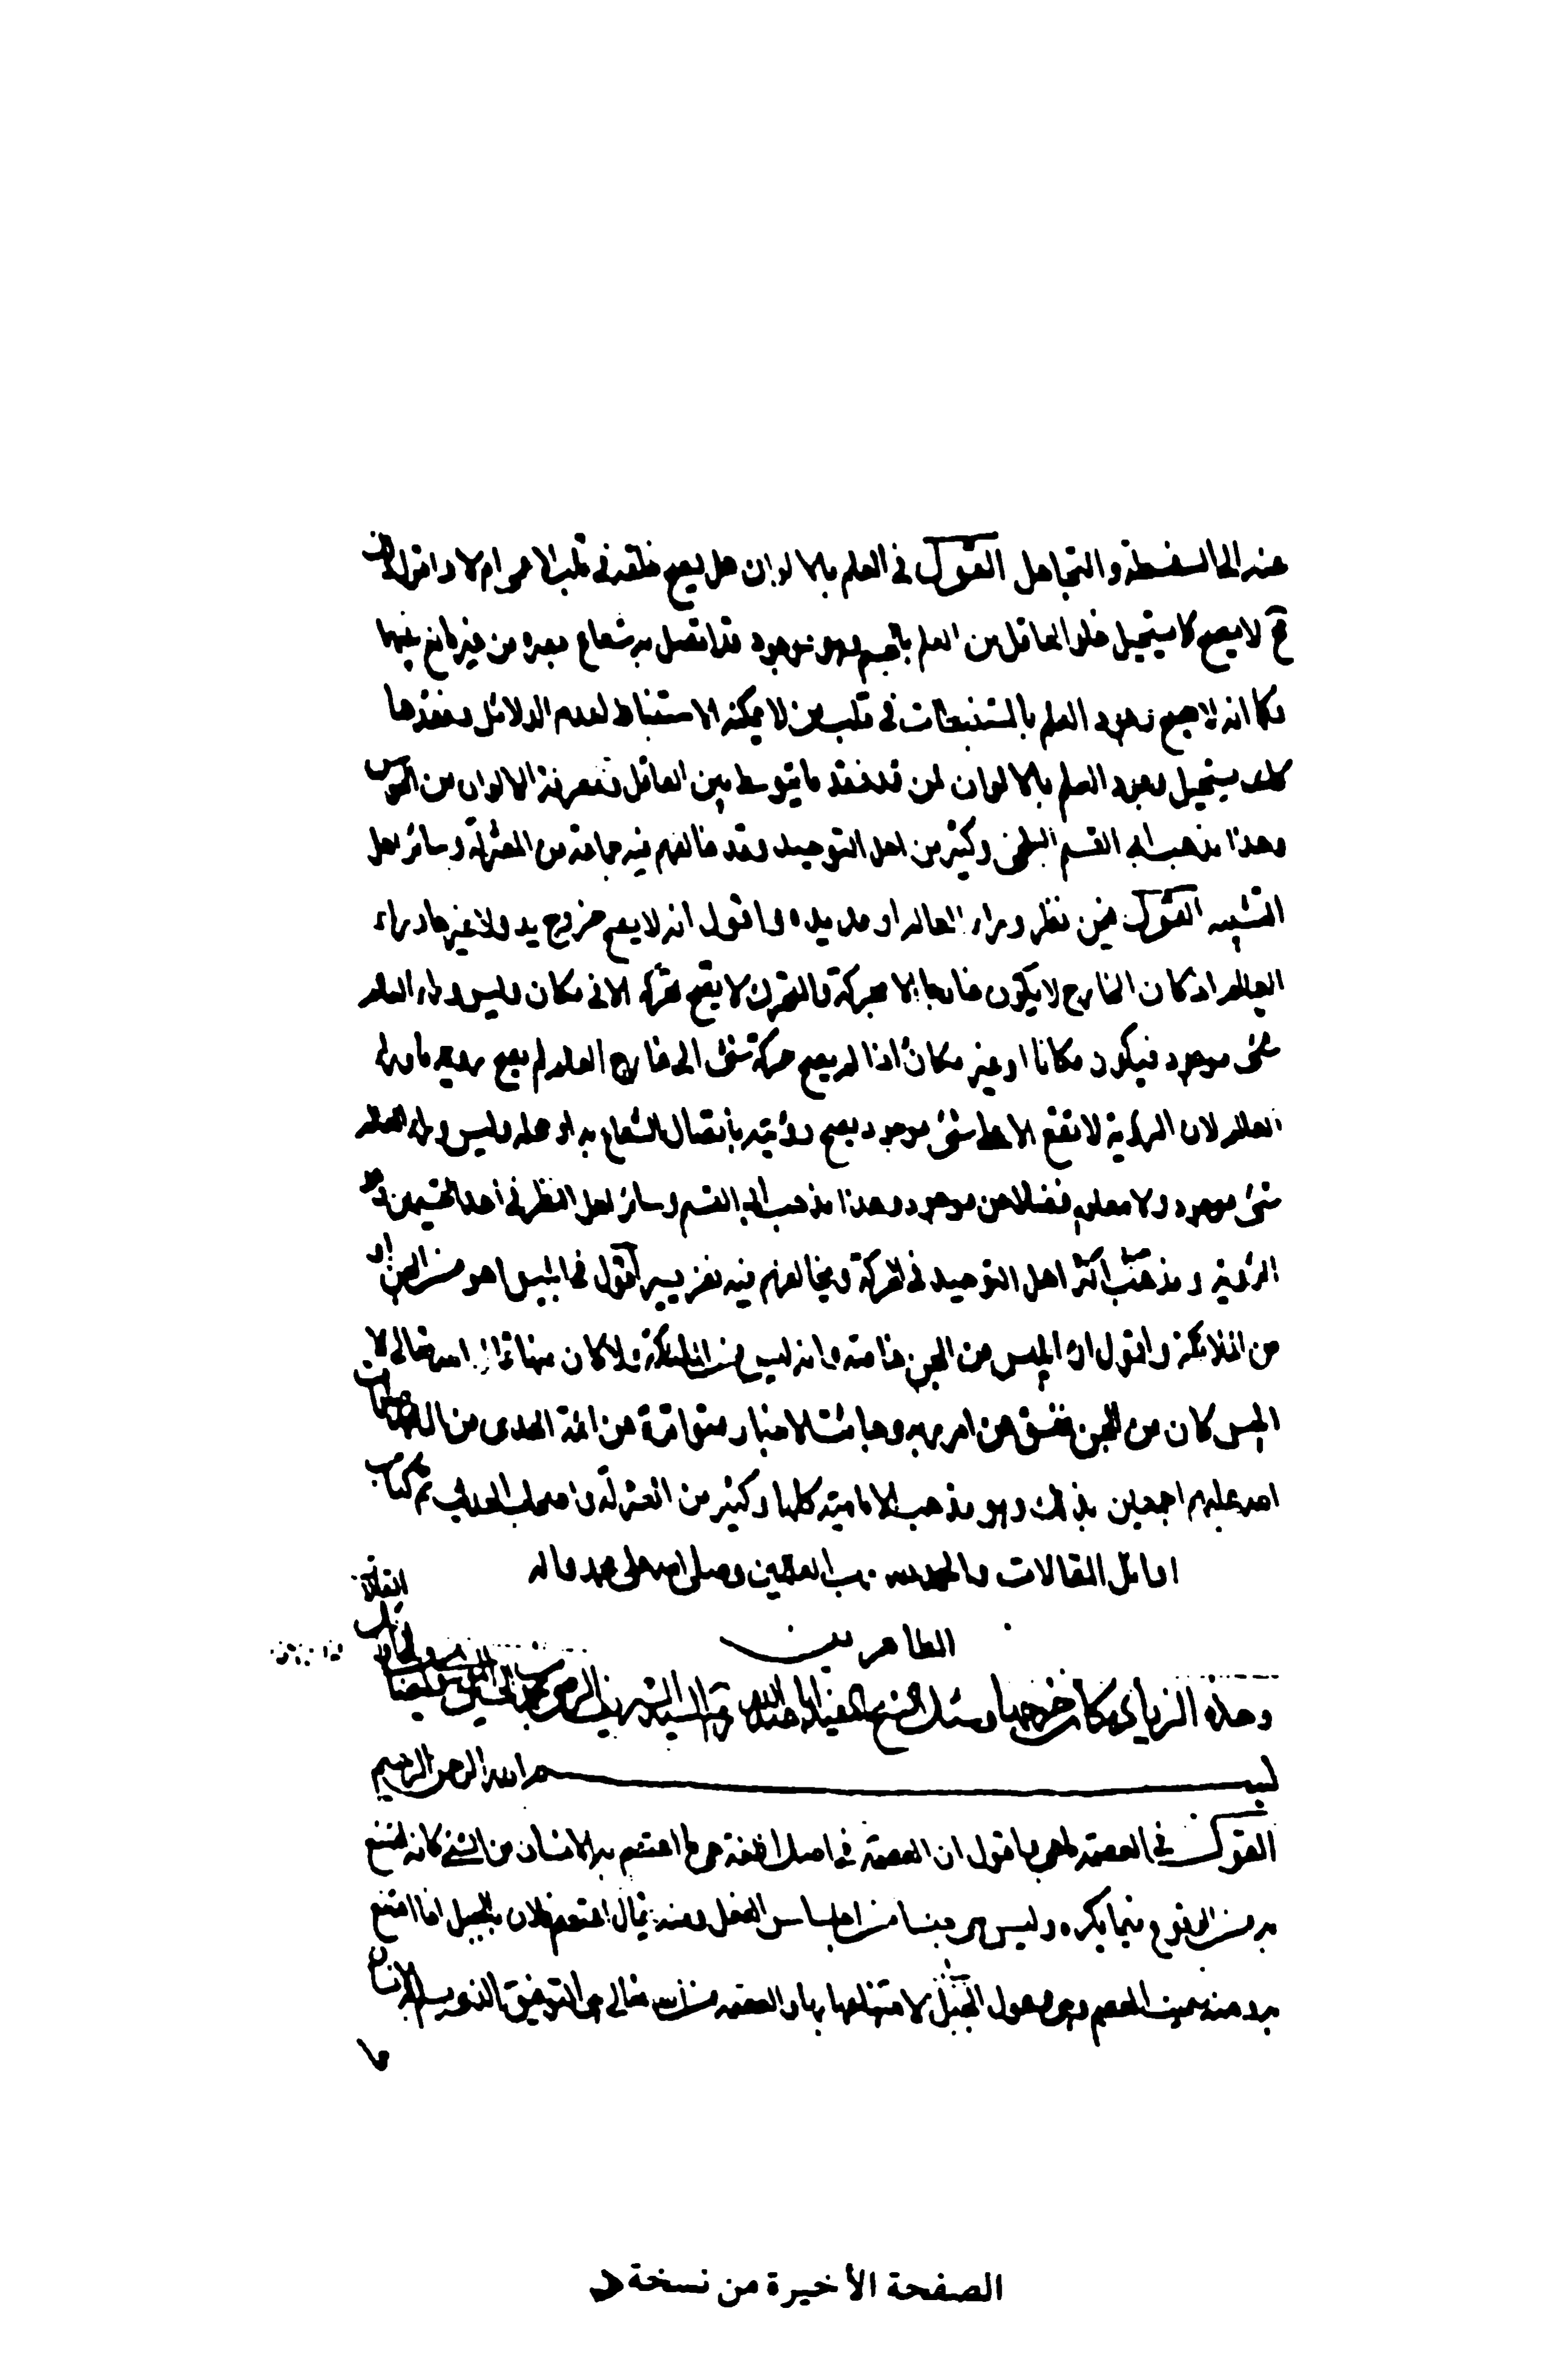 عند الى السفسطة والتجاهل القول في العلم بالالوان هل يصح خلقه في قلب الاعمى ام لا واقول ان
لا يصح كما يستحيل خلو العاقل من العلم بالجسم وهو موجود قد اتصل به شعاع بصره من غير مانع بينهما
وكما انه لا يصح وجود العلم بالمستنبطات في قلب من لا يمكنه الاستنباط لعدم الدلائل وفقدها
كذلك يستحيل وجود العلم بالالوان لمن قد فقد ما يتوسط بين العاقل ومعرفة الالوان من الحواس
وهذا مذهب ابي القسم البلخي وكثير من اهل التوحيد وقد خالفهم فيه جماعة من المعتزلة وسائر اهل
التشبيه القول فيمن نظر وراء العالم او مد يده واقول انه لا يصح خروج يد ولا غيرها وراء
العالم اذ كان الخارج لا يكون خارجا الا بحركة والمتحرك لا يصح تحركه الا في مكان وليس وراء العالم
شئ موجود فيكون مكانا او غير مكان اذا لم يصح حركة شئ الى خارج العالم لم يصح رؤية ما وراء
العالم لان الرؤية لا تقع الا على شئ موجود يصح رؤيته باتصال الشعاع به او بمحله وليس وراء العالم
شئ موجود ولا معلوم فضلا عن موجود وهذا مذهب ابي القسم وسائر اهل النظر في احد القسمين وهو
الرؤية ومذهب اكثر اهل التوحيد في الحركة ويخالفهم فيه نفر يسير القول في ابليس اهو من الجن او
من الملائكة واقول ان ابليس من الجن خاصة وانه ليس من الملائكة ولا كان منها قال الله تعالى الا
ابليس كان من الجن ففسق عن امر ربه وجاءت الاخبار متواترة عن ائمة الهدى من ال محمد صلوات
الله عليهم اجمعين بذلك وهو مذهب الامامية كلها وكثير من المعتزلة واصحاب الحديث تم كتاب
اوائل المقالات والحمد لله رب العالمين وصلى الله على محمد واله
الطاهرين
وهذه الزيادة كان خرجها وسئل الشيخ المفيد ابا عبدالله السيد الشريف الرضي محمد بن الحسين
بسم الله الرحمن الرحيم
القول في العصمة ما هي اقول ان العصمة في اصل اللغة هي ما اعتصم به الانسان من الشئ كانه امتنع
به من الوقوع فيما يكره وليس هي جنسا من اجناس الفعل ومنه يقال اعتصم فلان بالجبل اذا امتنع
به ومنه سميت العصم وهي وعول الجبل لامتناعها بها والعصمة من الله تعالى هي التوفيق الذي يسلم به الانسان
الصفحة الأخيرة من نسخة